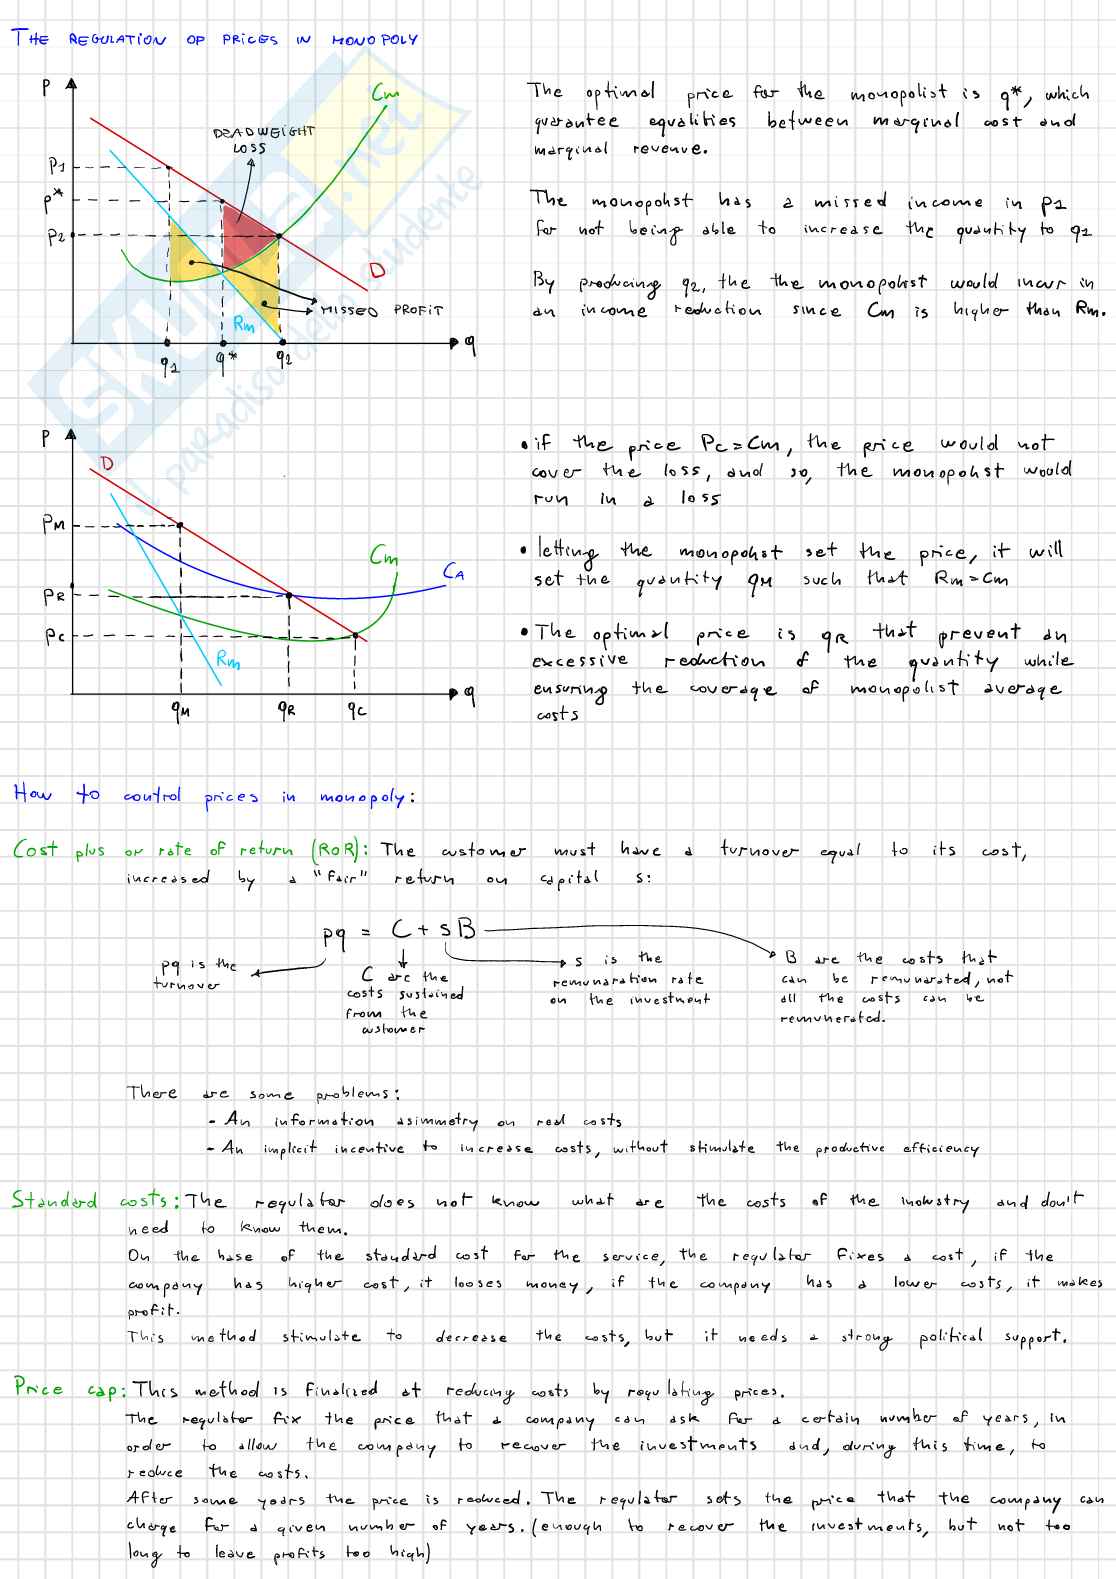 THE REGULATION OF PRICES IN MONOPOLY
P
Cm
DEADWEIGHT
LOSS
P1
P*
P2
D
MISSED PROFIT
Rm
q
q1
q*
q2
The optimal price for the monopolist is q*, which
guarantee equalities between marginal cost and
marginal revenue.
The monopolist has a missed income in p1
for not being able to increase the quantity to q2
By producing q2, the the monopolist would incur in
an income reduction since Cm is higher than Rm.
SKUOLA.net
il paradiso dello studente
P
D
PM
Cm
CA
PR
PC
Rm
q
qM
qR
qC
• if the price Pc=Cm, the price would not
cover the loss, and so, the monopolist would
run in a loss
• letting the monopolist set the price, it will
set the quantity qM such that Rm=Cm
• The optimal price is qR that prevent an
excessive reduction of the quantity while
ensuring the coverage of monopolist average
costs
How to control prices in monopoly:
Cost plus or rate of return (RoR): The customer must have a turnover equal to its cost,
increased by a "fair" return on capital s:
pq = C + sB
pq is the
turnover
C are the
costs sustained
from the
customer
s is the
remunaration rate
on the investment
B are the costs that
can be remunarated, not
all the costs can be
remunerated.
There are some problems:
- An information asimmetry on real costs
- An implicit incentive to increase costs, without stimulate the productive efficiency
Standard costs: The regulator does not know what are the costs of the industry and don't
need to know them.
On the base of the standard cost for the service, the regulator fixes a cost, if the
company has higher cost, it looses money, if the company has a lower costs, it makes
profit.
This method stimulate to decrease the costs, but it needs a strong political support.
Price cap: This method is finalized at reducing costs by regulating prices.
The regulator fix the price that a company can ask for a certain number of years, in
order to allow the company to recover the investments and, during this time, to
reduce the costs.
After some years the price is reduced. The regulator sets the price that the company can
charge for a given number of years. (enough to recover the investments, but not too
long to leave profits too high)